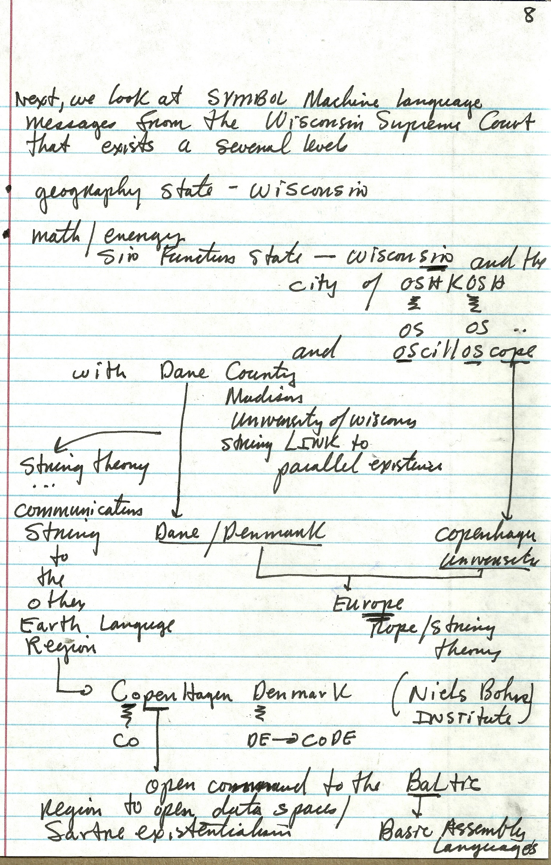 8
Next, we look at SYMBOL Machine Language
messages from the Wisconsin Supreme Court
that exists a several levels
• geography state - Wisconsin
• math / energy
Sin Function State — Wisconsin and the
city of OSHKOSH
OS OS ..
and OScillOScope
with Dane County
Madison
University of Wiscons
String LINK to
parallel existence
String theory
...
communication
String
to
the
other
Earth Language
Region
Dane / Denmark
Copenhagen
University
Europe
Rope / String
theory
CopenHagen Denmark (Niels Bohr
INSTITUTE)
CO DE → CODE
open command to the Baltic
Region to open data spaces /
Sartre existentialism
Basic Assembly
Languages